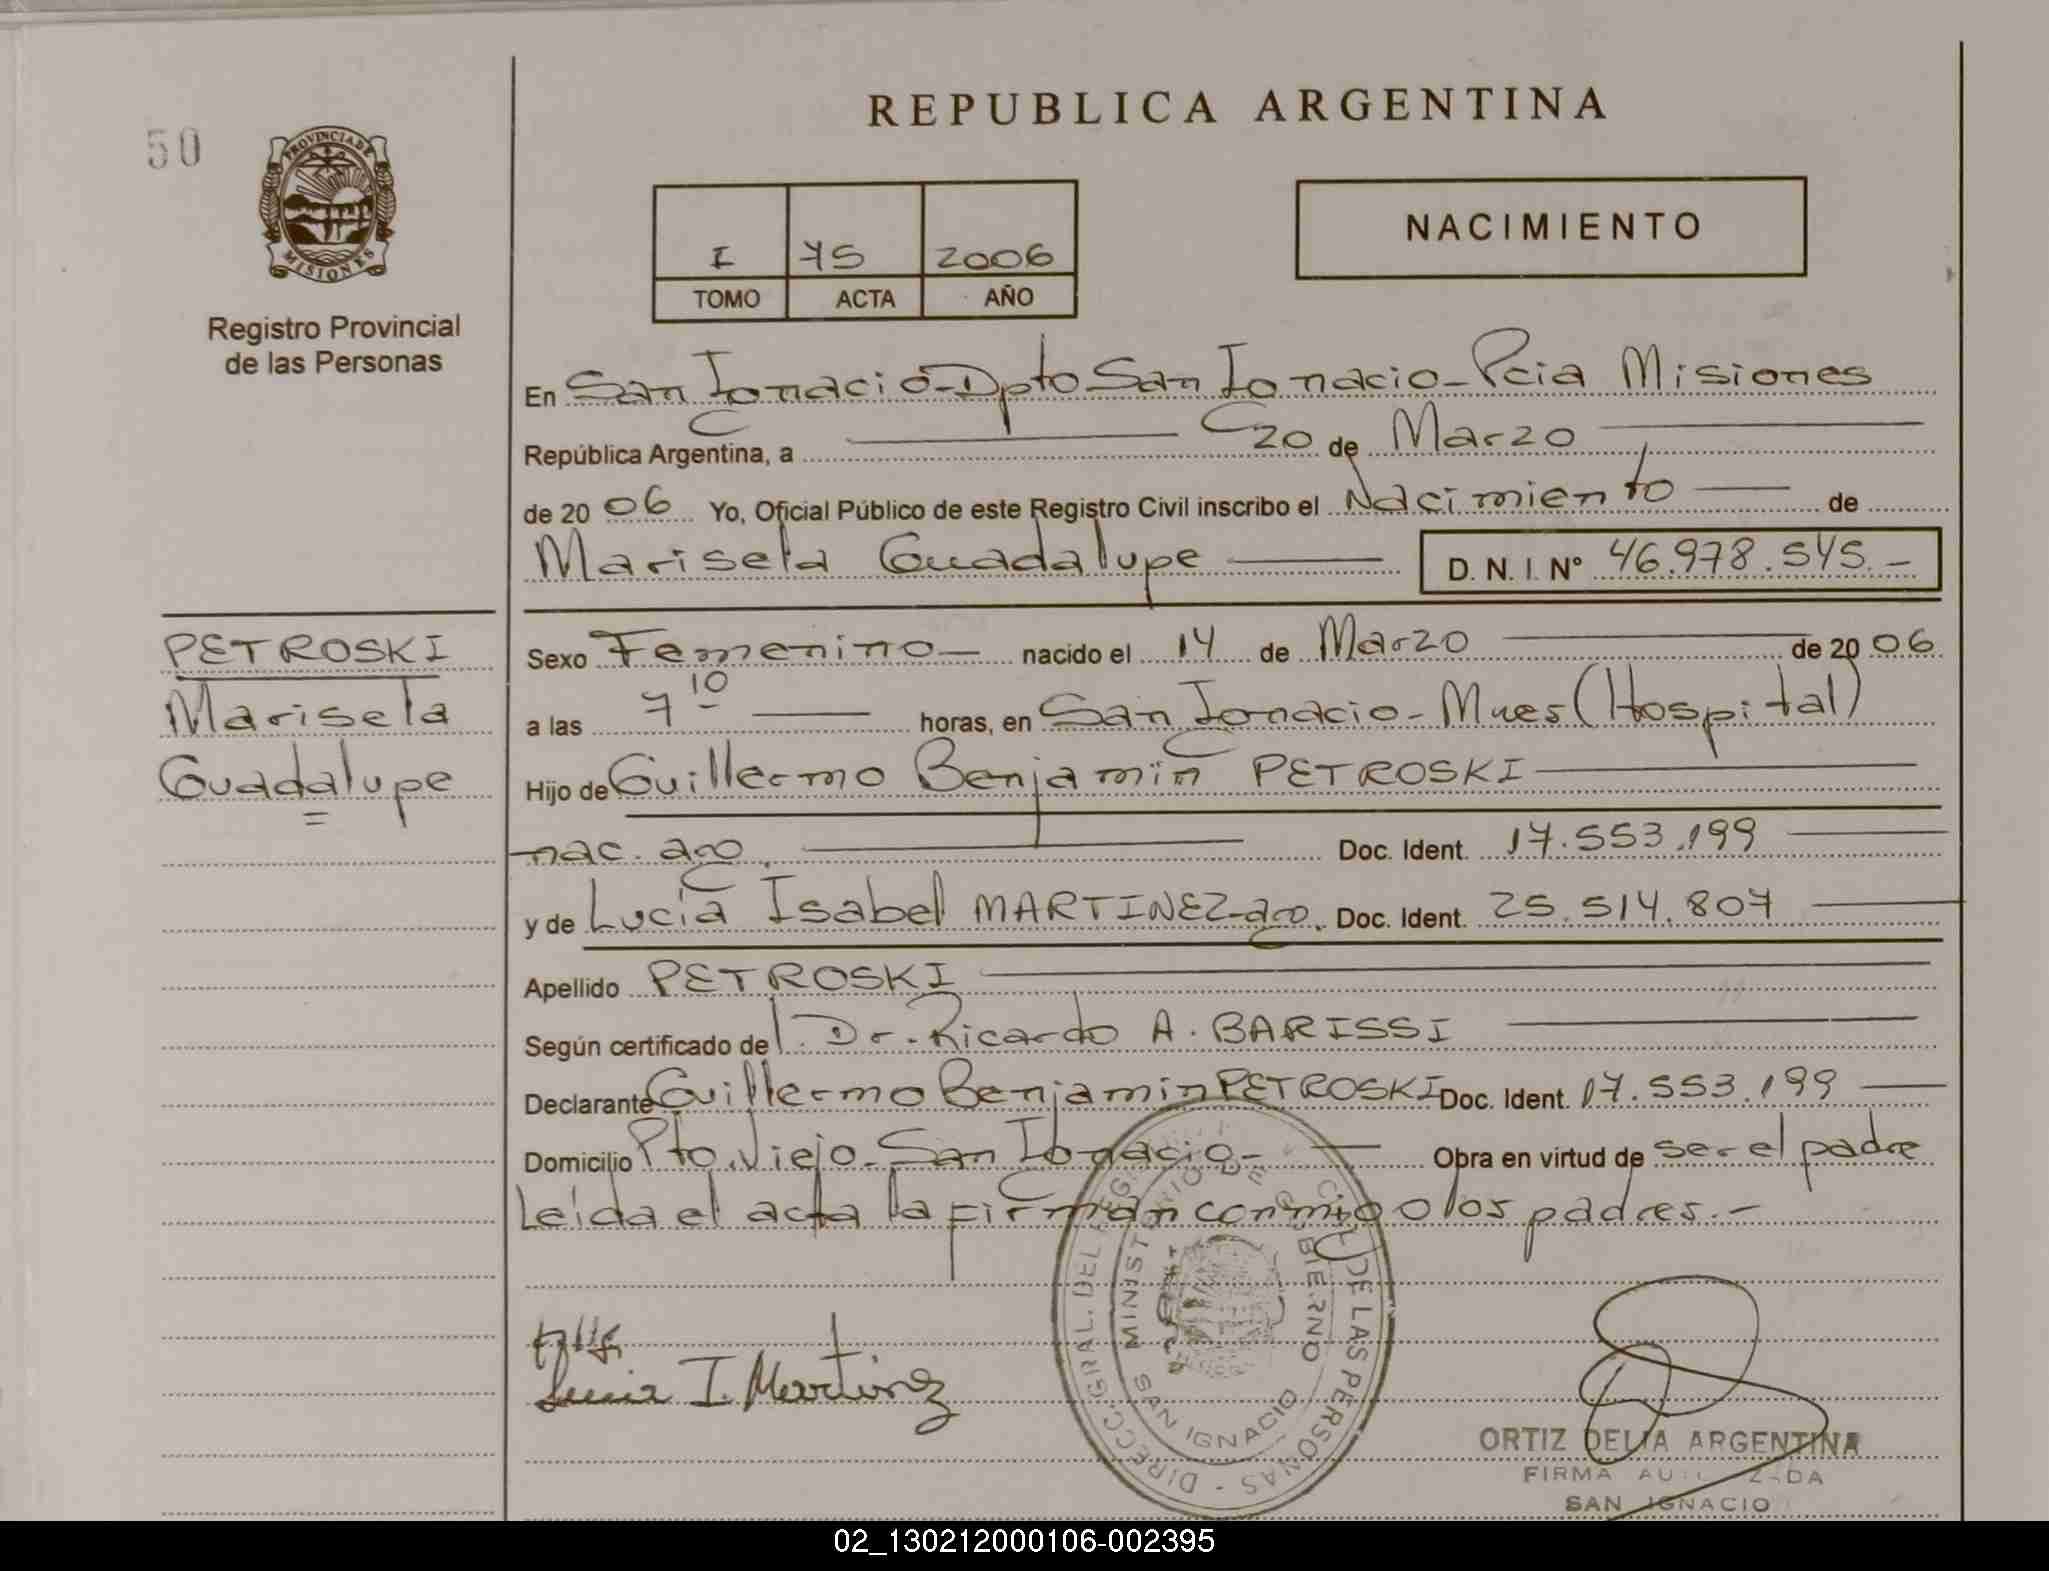 REPUBLICA ARGENTINA
50
PROVINCIA DE
MISIONES
Registro Provincial
de las Personas
I 75 2006
TOMO ACTA AÑO
NACIMIENTO
En San Ignacio-Dpto San Ignacio-Pcia Misiones
República Argentina, a 20 de Marzo
de 20 06 Yo, Oficial Público de este Registro Civil inscribo el Nacimiento de
Marisela Guadalupe D. N. I. Nº 46.978.545.-
PETROSKI
Marisela
Guadalupe
Sexo Femenino nacido el 14 de Marzo de 20 06
a las 7 10 horas, en San Ignacio-Mnes (Hospital)
Hijo de Guillermo Benjamin PETROSKI
nac. Doc. Ident. 17.553.199
y de Lucía Isabel MARTINEZ- Doc. Ident. 25.514.807
Apellido PETROSKI
Según certificado de l. Dr. Ricardo A. BARISSI
Declarante Guillermo Benjamin PETROSKI Doc. Ident. 17.553.199
Domicilio Pto. Viejo-San Ignacio- Obra en virtud de ser el padre
Leída el acta la firman conmigo los padres.-
Lucia I. Martinez
DIRECC. GRAL. DEL REG. CIVIL DE LAS PERSONAS
MINISTERIO DE GOBIERNO
SAN IGNACIO
ORTIZ DELIA ARGENTINA
FIRMA
SAN IGNACIO
02_130212000106-002395